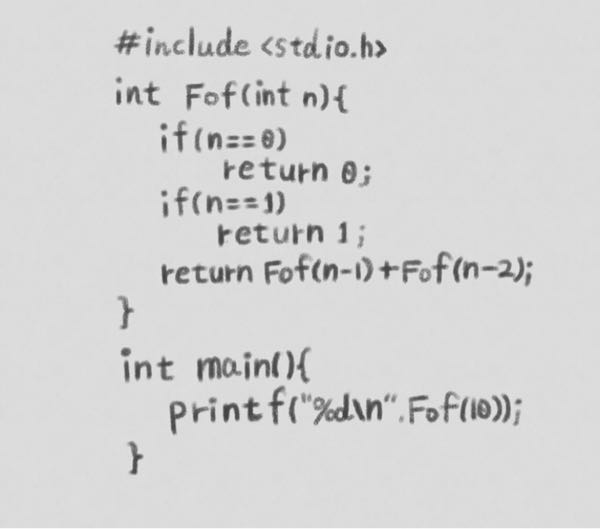 #include <stdio.h>
int Fof(int n){
if(n==0)
return 0;
if(n==1)
return 1;
return Fof(n-1)+Fof(n-2);
}
int main(){
printf("%d\n".Fof(10));
}